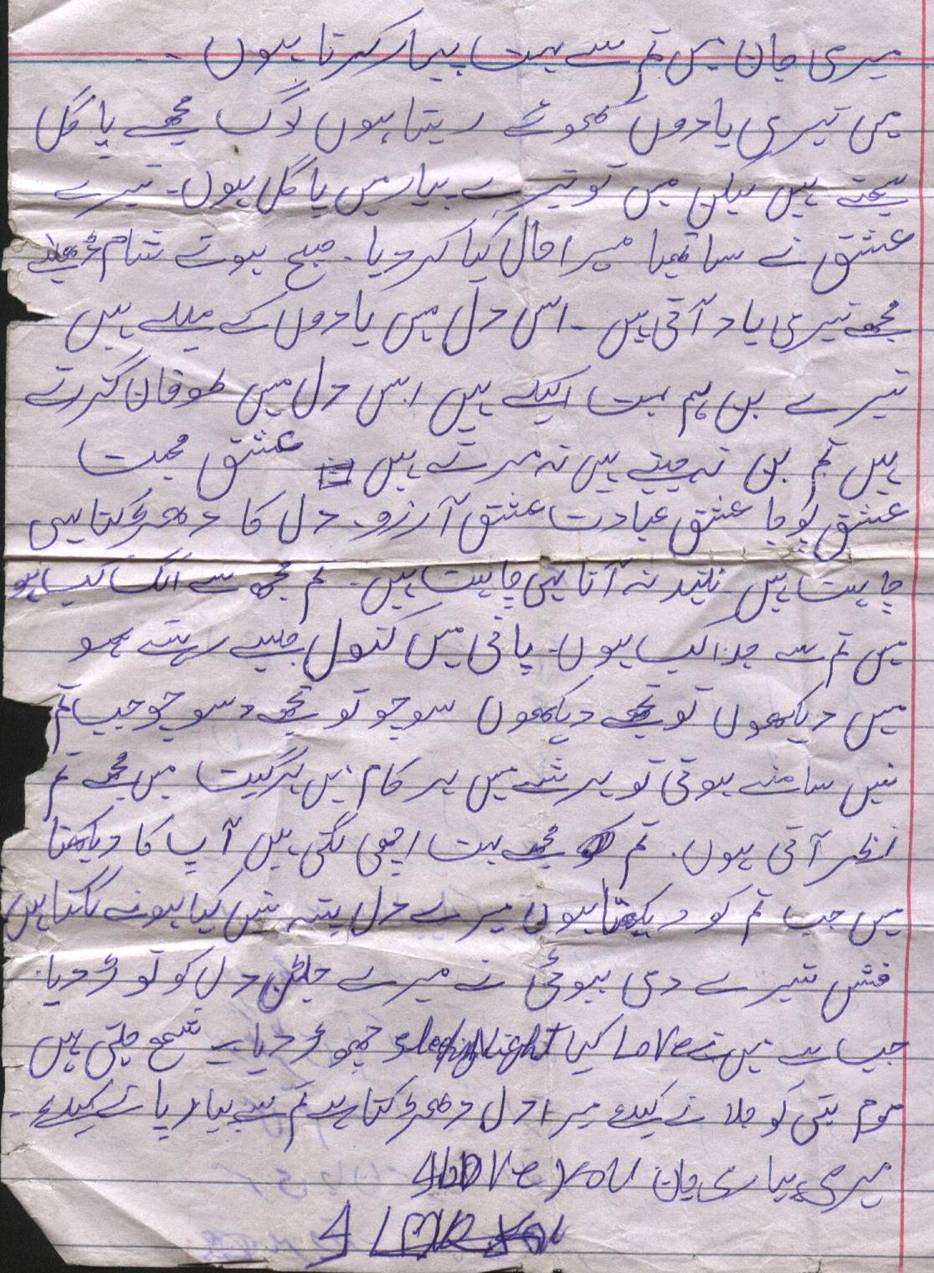 میری جان میں تم سے بہت پیار کرتا ہوں ۔۔
میں تیری یادوں کھوئے رہتا ہوں لوگ مجھے پاگل
سمجتے ہیں لیکن میں تو تیرے پیار میں پاگل ہوں۔ تیرے
عشق نے ساتھیا میرا حال کیا کر دیا۔ صبح ہوتے شام ڈھلے
مجھے تیری یاد آتی ہیں ۔ اس دل میں یادوں کے میلے ہیں
تیرے بن ہم بہت اکیلے ہیں اس دل میں طوفان گزرتے
ہیں تم بن نہ جیتے ہیں نہ مرتے ہیں عشق محبت
عشق پوجا عشق عبادت عشق آرزو۔ دل کا دھڑکتا ہی
چاہت ہیں نیند نہ آنا ہی چاہت ہیں۔ تم مجھ سے الگ کب ہو
میں تم سے جدا کب ہوں۔ پانی میں کنول جیسے رہتے ہو
میں دیکھوں تو تجھے دیکھوں سوچو تو تجھے سوچو جب تم
نہیں سامنے ہوتی تو ہر شے میں ہر کام میں ہر گیت میں مجھے تم
نظر آتی ہوں۔ تم مجھے بہت اچھی لگتی ہیں آپ کا دیکھنا
میں جب تم کو دیکھتا ہوں میرے دل پتہ نہیں کیا ہونے لگتا ہیں
تیرے دی بیوفی نے میرے دل کو توڑ دیا۔
جب سے میں نے Love کیا Night چھوڑ دیا ۔ شمع جلتی ہیں
موم بتی کو جلانے کیلئے میرا دل دھڑکتا ہے تم سے پیار پانے کیلئے۔
میری پیاری جان I LOVe you
I LOVe You